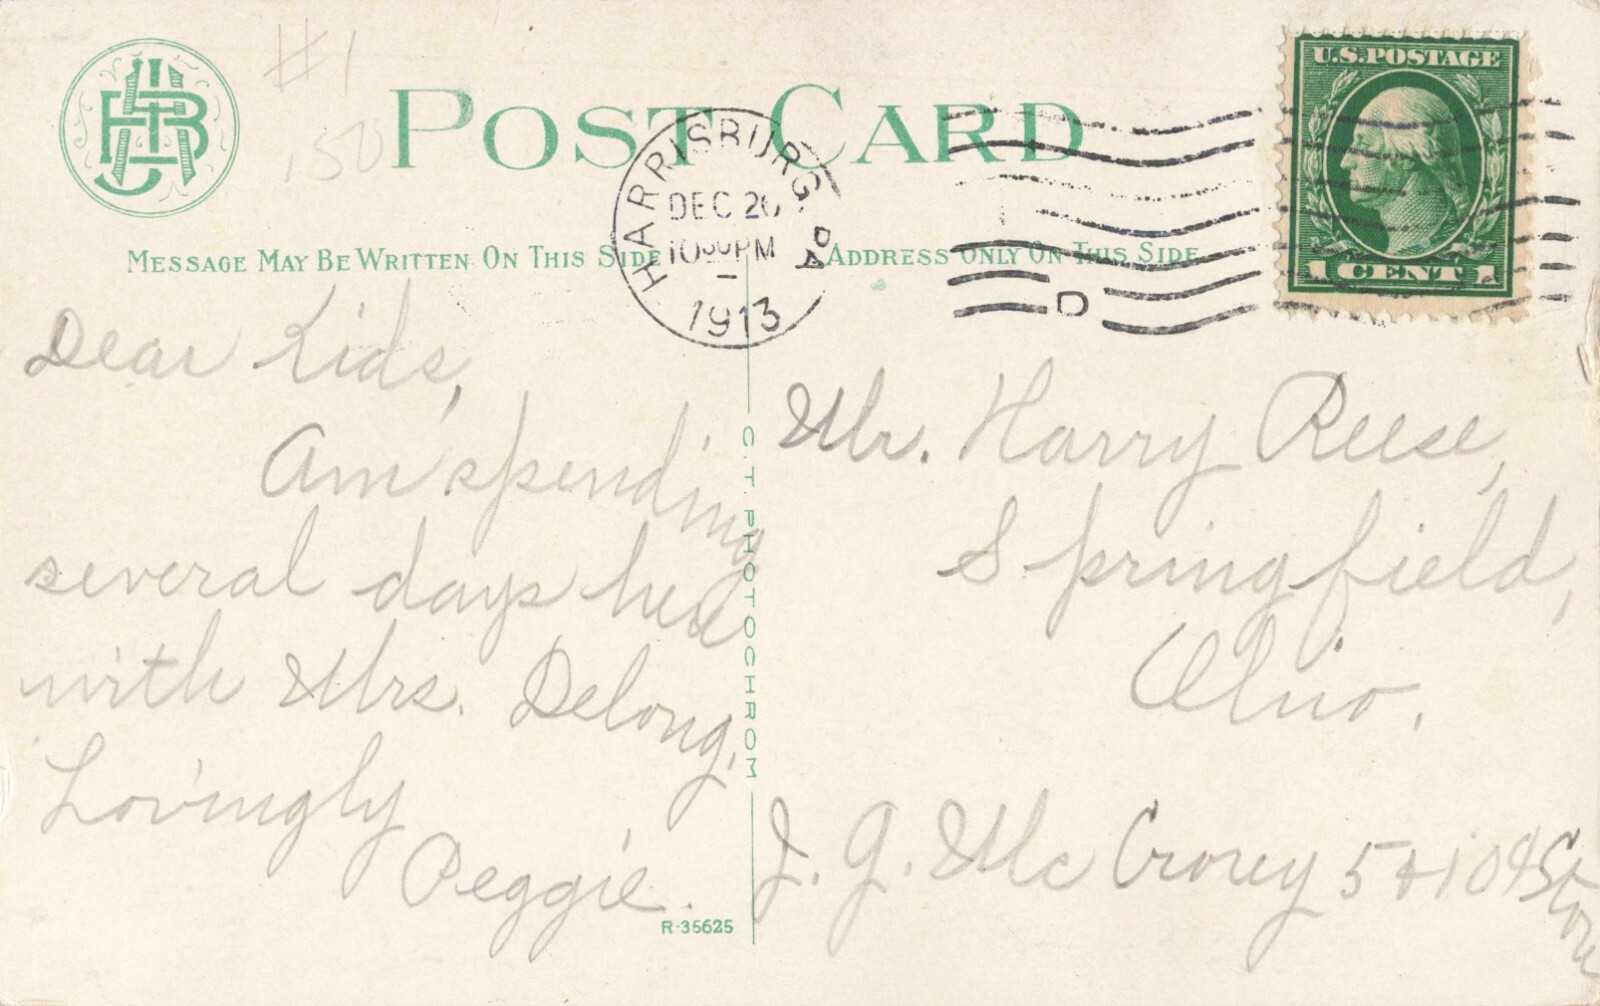 #1
.50
POST CARD
HARRISBURG PA
DEC 26
1030PM
1913
D
U.S. POSTAGE
1 CENT 1
MESSAGE MAY BE WRITTEN ON THIS SIDE
ADDRESS ONLY ON THIS SIDE
Dear Kids,
Am spending
several days here
with Mrs. Delong,
Lovingly
Peggie.
R-35625
C. T. PHOTOCHROM
Mr. Harry Reese,
Springfield,
Ohio.
J. G. McCrorey 5 + 10¢ Store